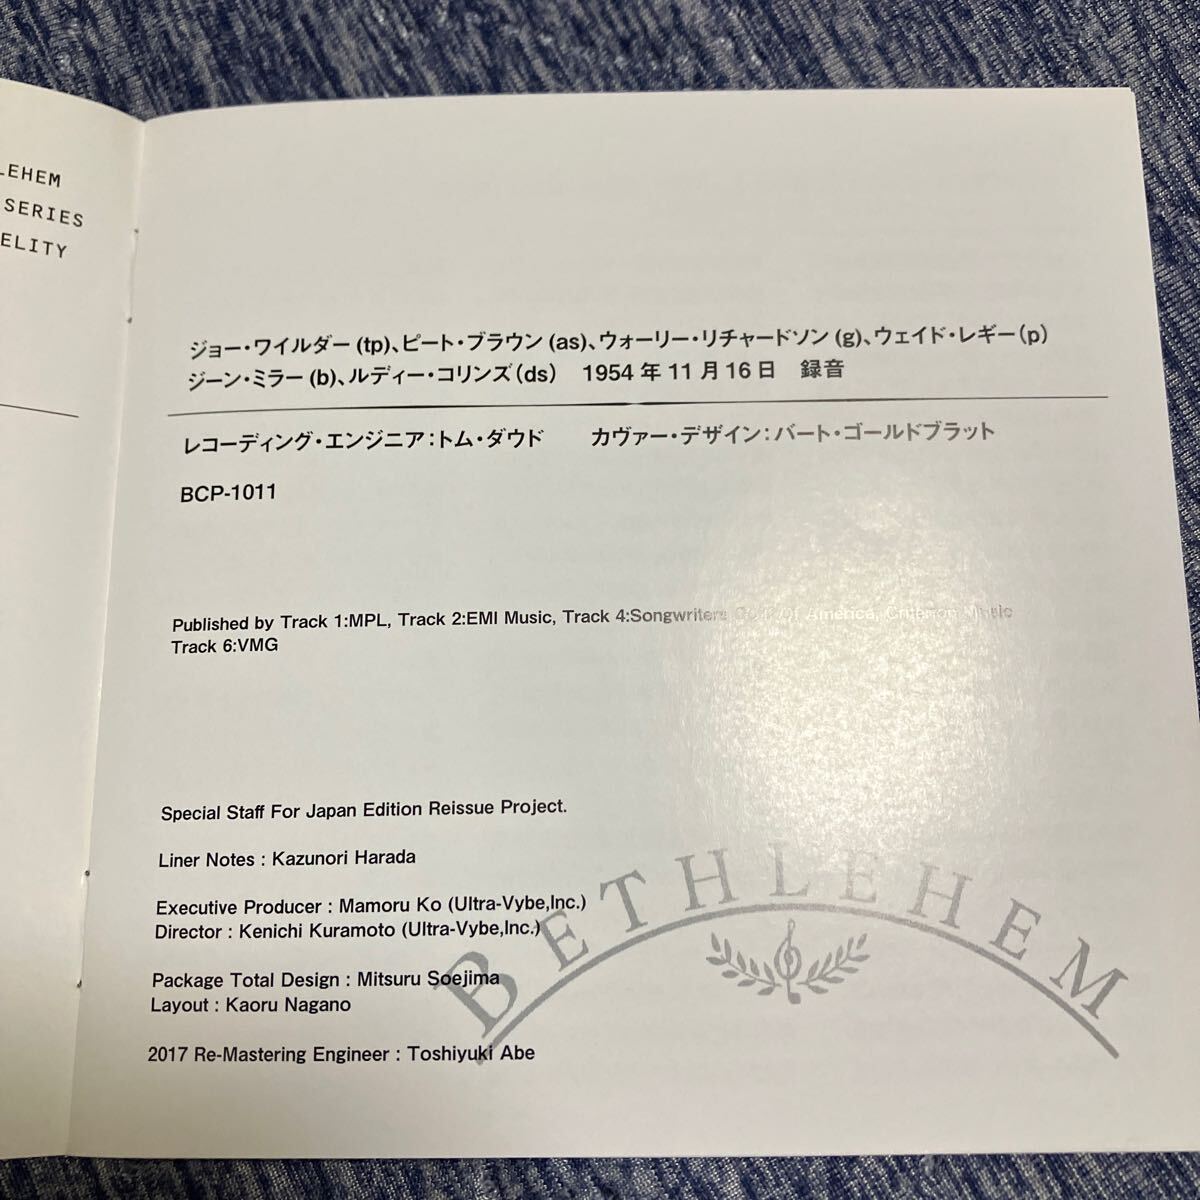 LEHEM
SERIES
ELITY
ジョー・ワイルダー (tp)、ピート・ブラウン (as)、ウォーリー・リチャードソン (g)、ウェイド・レギー (p)
ジーン・ミラー (b)、ルディー・コリンズ (ds)　1954 年 11 月 16 日　録音
レコーディング・エンジニア：トム・ダウド　カヴァー・デザイン：バート・ゴールドブラット
BCP-1011
Published by Track 1:MPL, Track 2:EMI Music, Track 4:Songwriters Of America, Criterion Music
Track 6:VMG
Special Staff For Japan Edition Reissue Project.
Liner Notes : Kazunori Harada
Executive Producer : Mamoru Ko (Ultra-Vybe,Inc.)
Director : Kenichi Kuramoto (Ultra-Vybe,Inc.)
Package Total Design : Mitsuru Soejima
Layout : Kaoru Nagano
2017 Re-Mastering Engineer : Toshiyuki Abe
BETHLEHEM